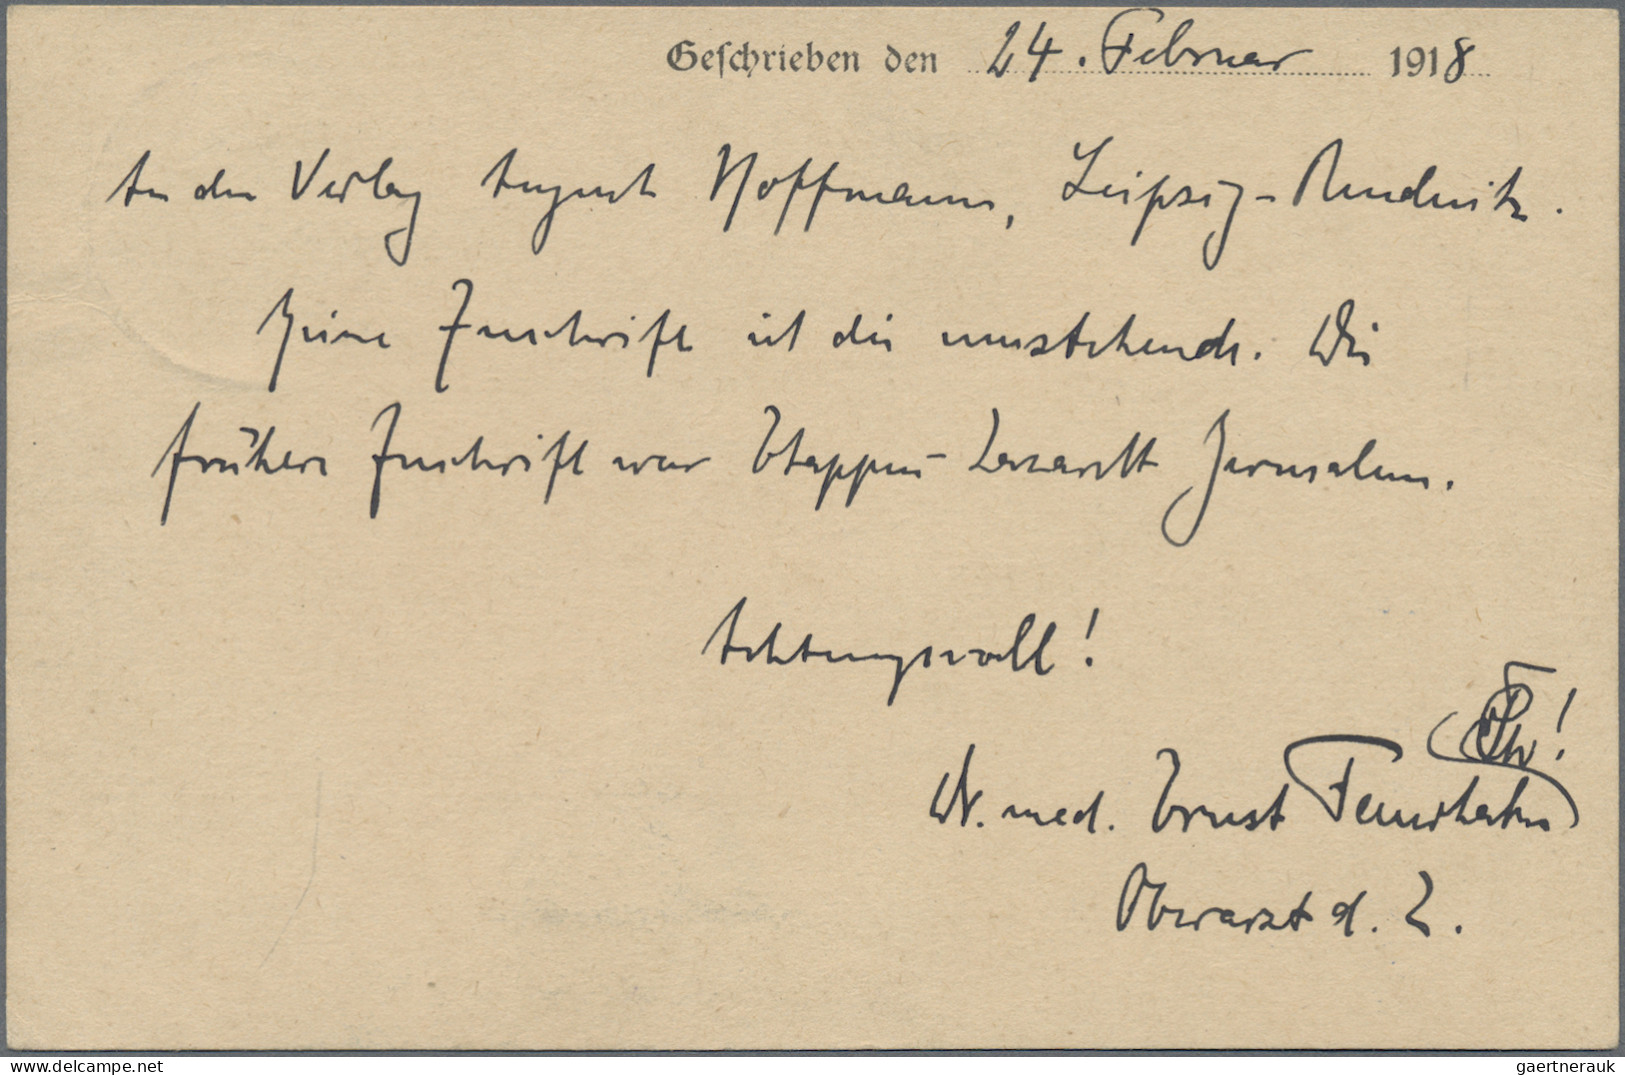 Geschrieben den 24. Februar 1918
An den Verlag August Hoffmann, Leipzig-Reudnitz.
Meine Zuschrift ist die umstehende. Die
frühere Zuschrift war Etappen-Lazarett Jerusalem.
Achtungsvoll!
Dr. med. Ernst
Oberarzt d. L.
gaertnerauk